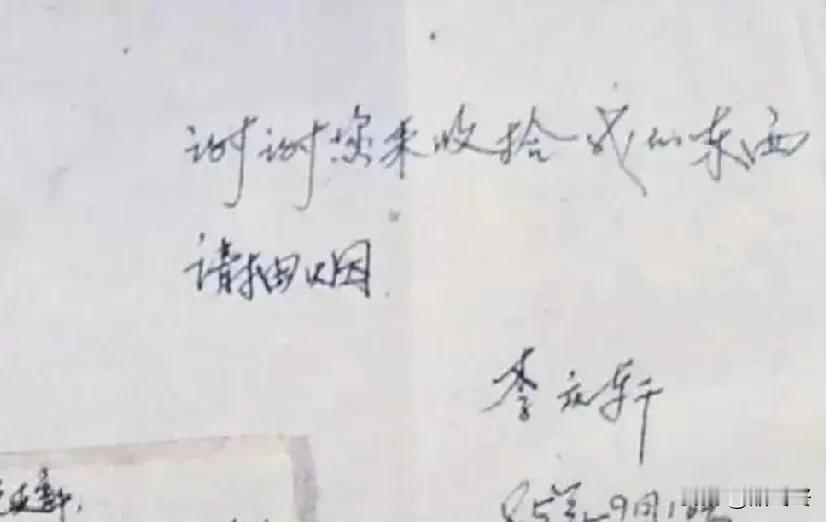 谢谢您来收拾我的东西
请抽烟
李文轩
85年9月